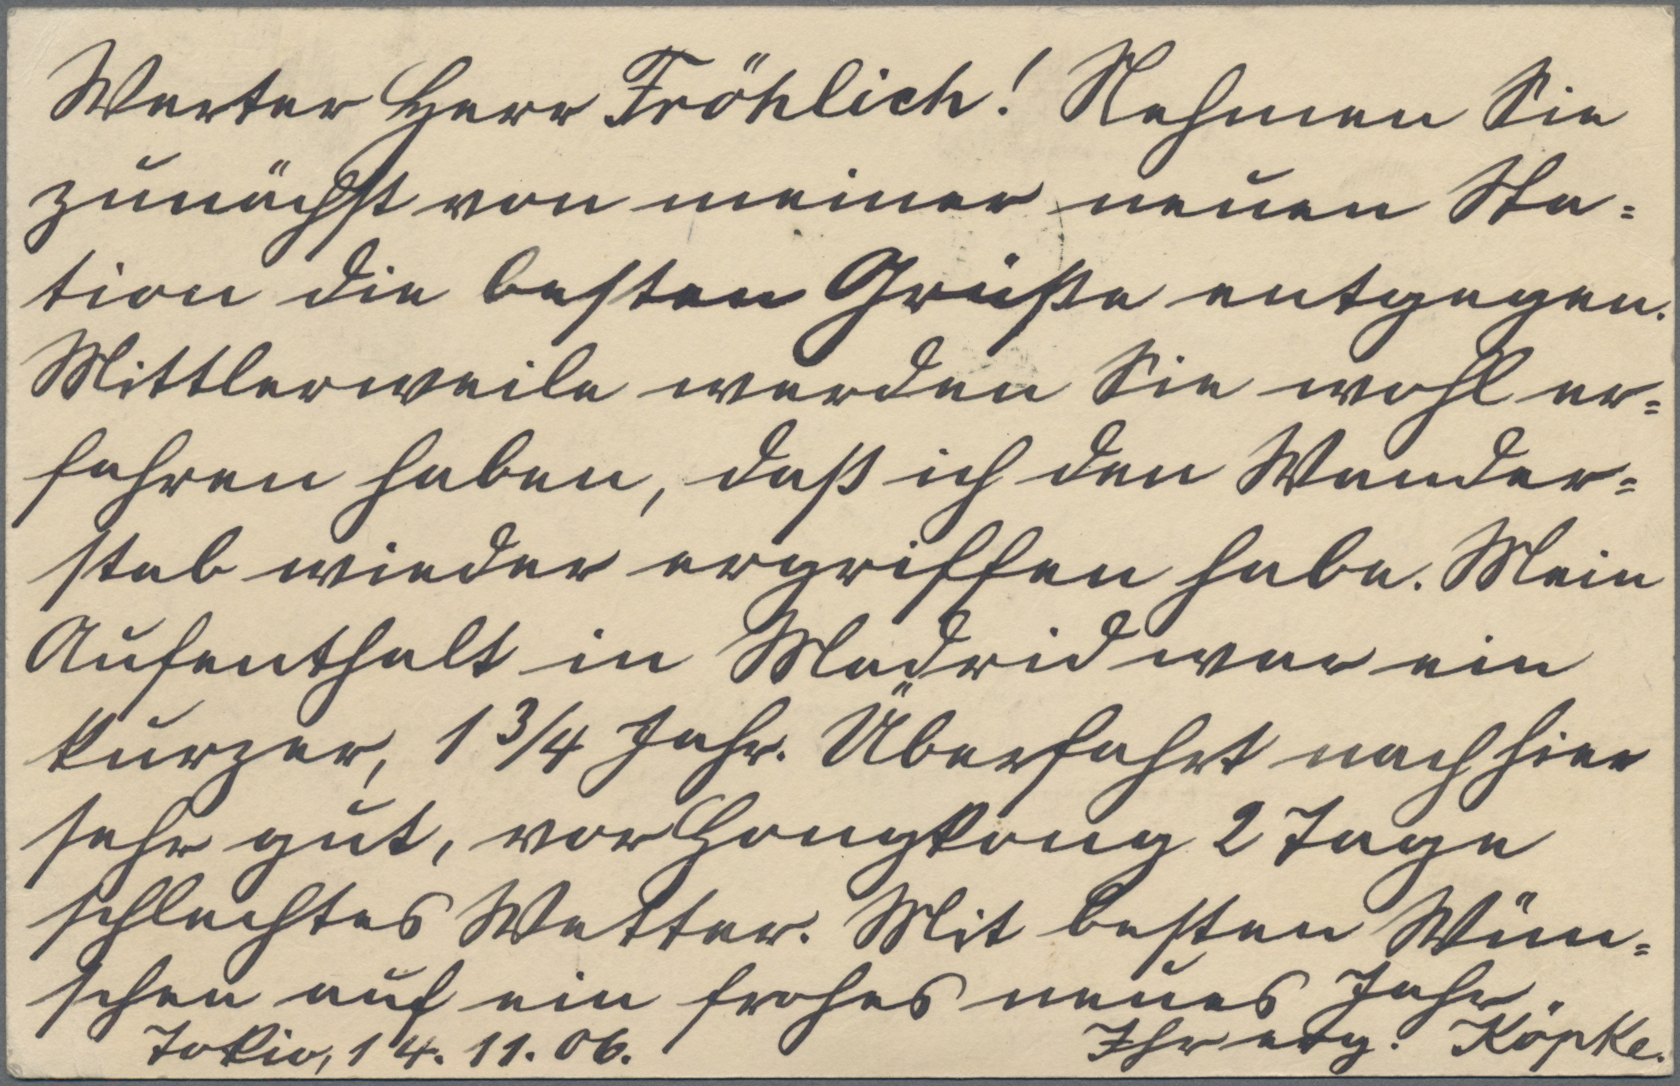 Werter Herr Fröhlich! Nehmen Sie
zunächst von meiner neuen Sta=
tion die besten Grüße entgegen.
Mittlerweile werden Sie wohl er=
fahren haben, daß ich den Wander=
stab wieder ergriffen habe. Mein
Aufenthalt in Madrid war ein
kurzer, 1 3/4 Jahr. Überfahrt nach hier
sehr gut, vor Hongkong 2 Tage
schlechtes Wetter. Mit besten Wün=
schen auf ein frohes neues Jahr.
Tokio, 14. 11. 06. Ihr erg. Köpke.